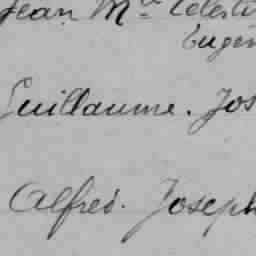 Jean Mie Célesti
Eugèn
Guillaume. Jos
Alfred. Joseph